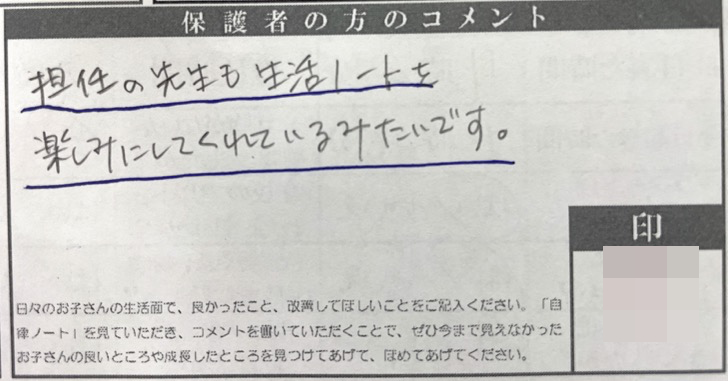 保護者の方のコメント
担任の先生も生活ノートを
楽しみにしてくれているみたいです。
印
日々のお子さんの生活面で、良かったこと、改善してほしいことをご記入ください。「自
律ノート」を見ていただき、コメントを書いていただくことで、ぜひ今まで見えなかった
お子さんの良いところや成長したところを見つけてあげて、ほめてあげてください。